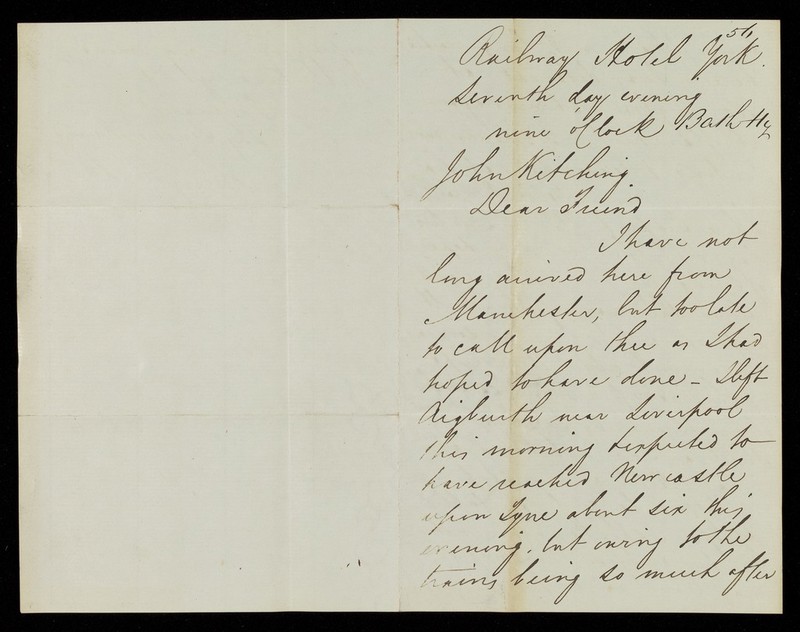 56
Railway Hotel York.
Seventh day evening
nine o'Clock
John Kitching.
Dear Friend
I have not
long arrived here from
Manchester, but too late
to call upon thee as I had
hoped to have done - I left
Aigburth near Liverpool
this morning & expected to
have reached Newcastle
upon Tyne about six this
evening, but owing to the
trains being so much after